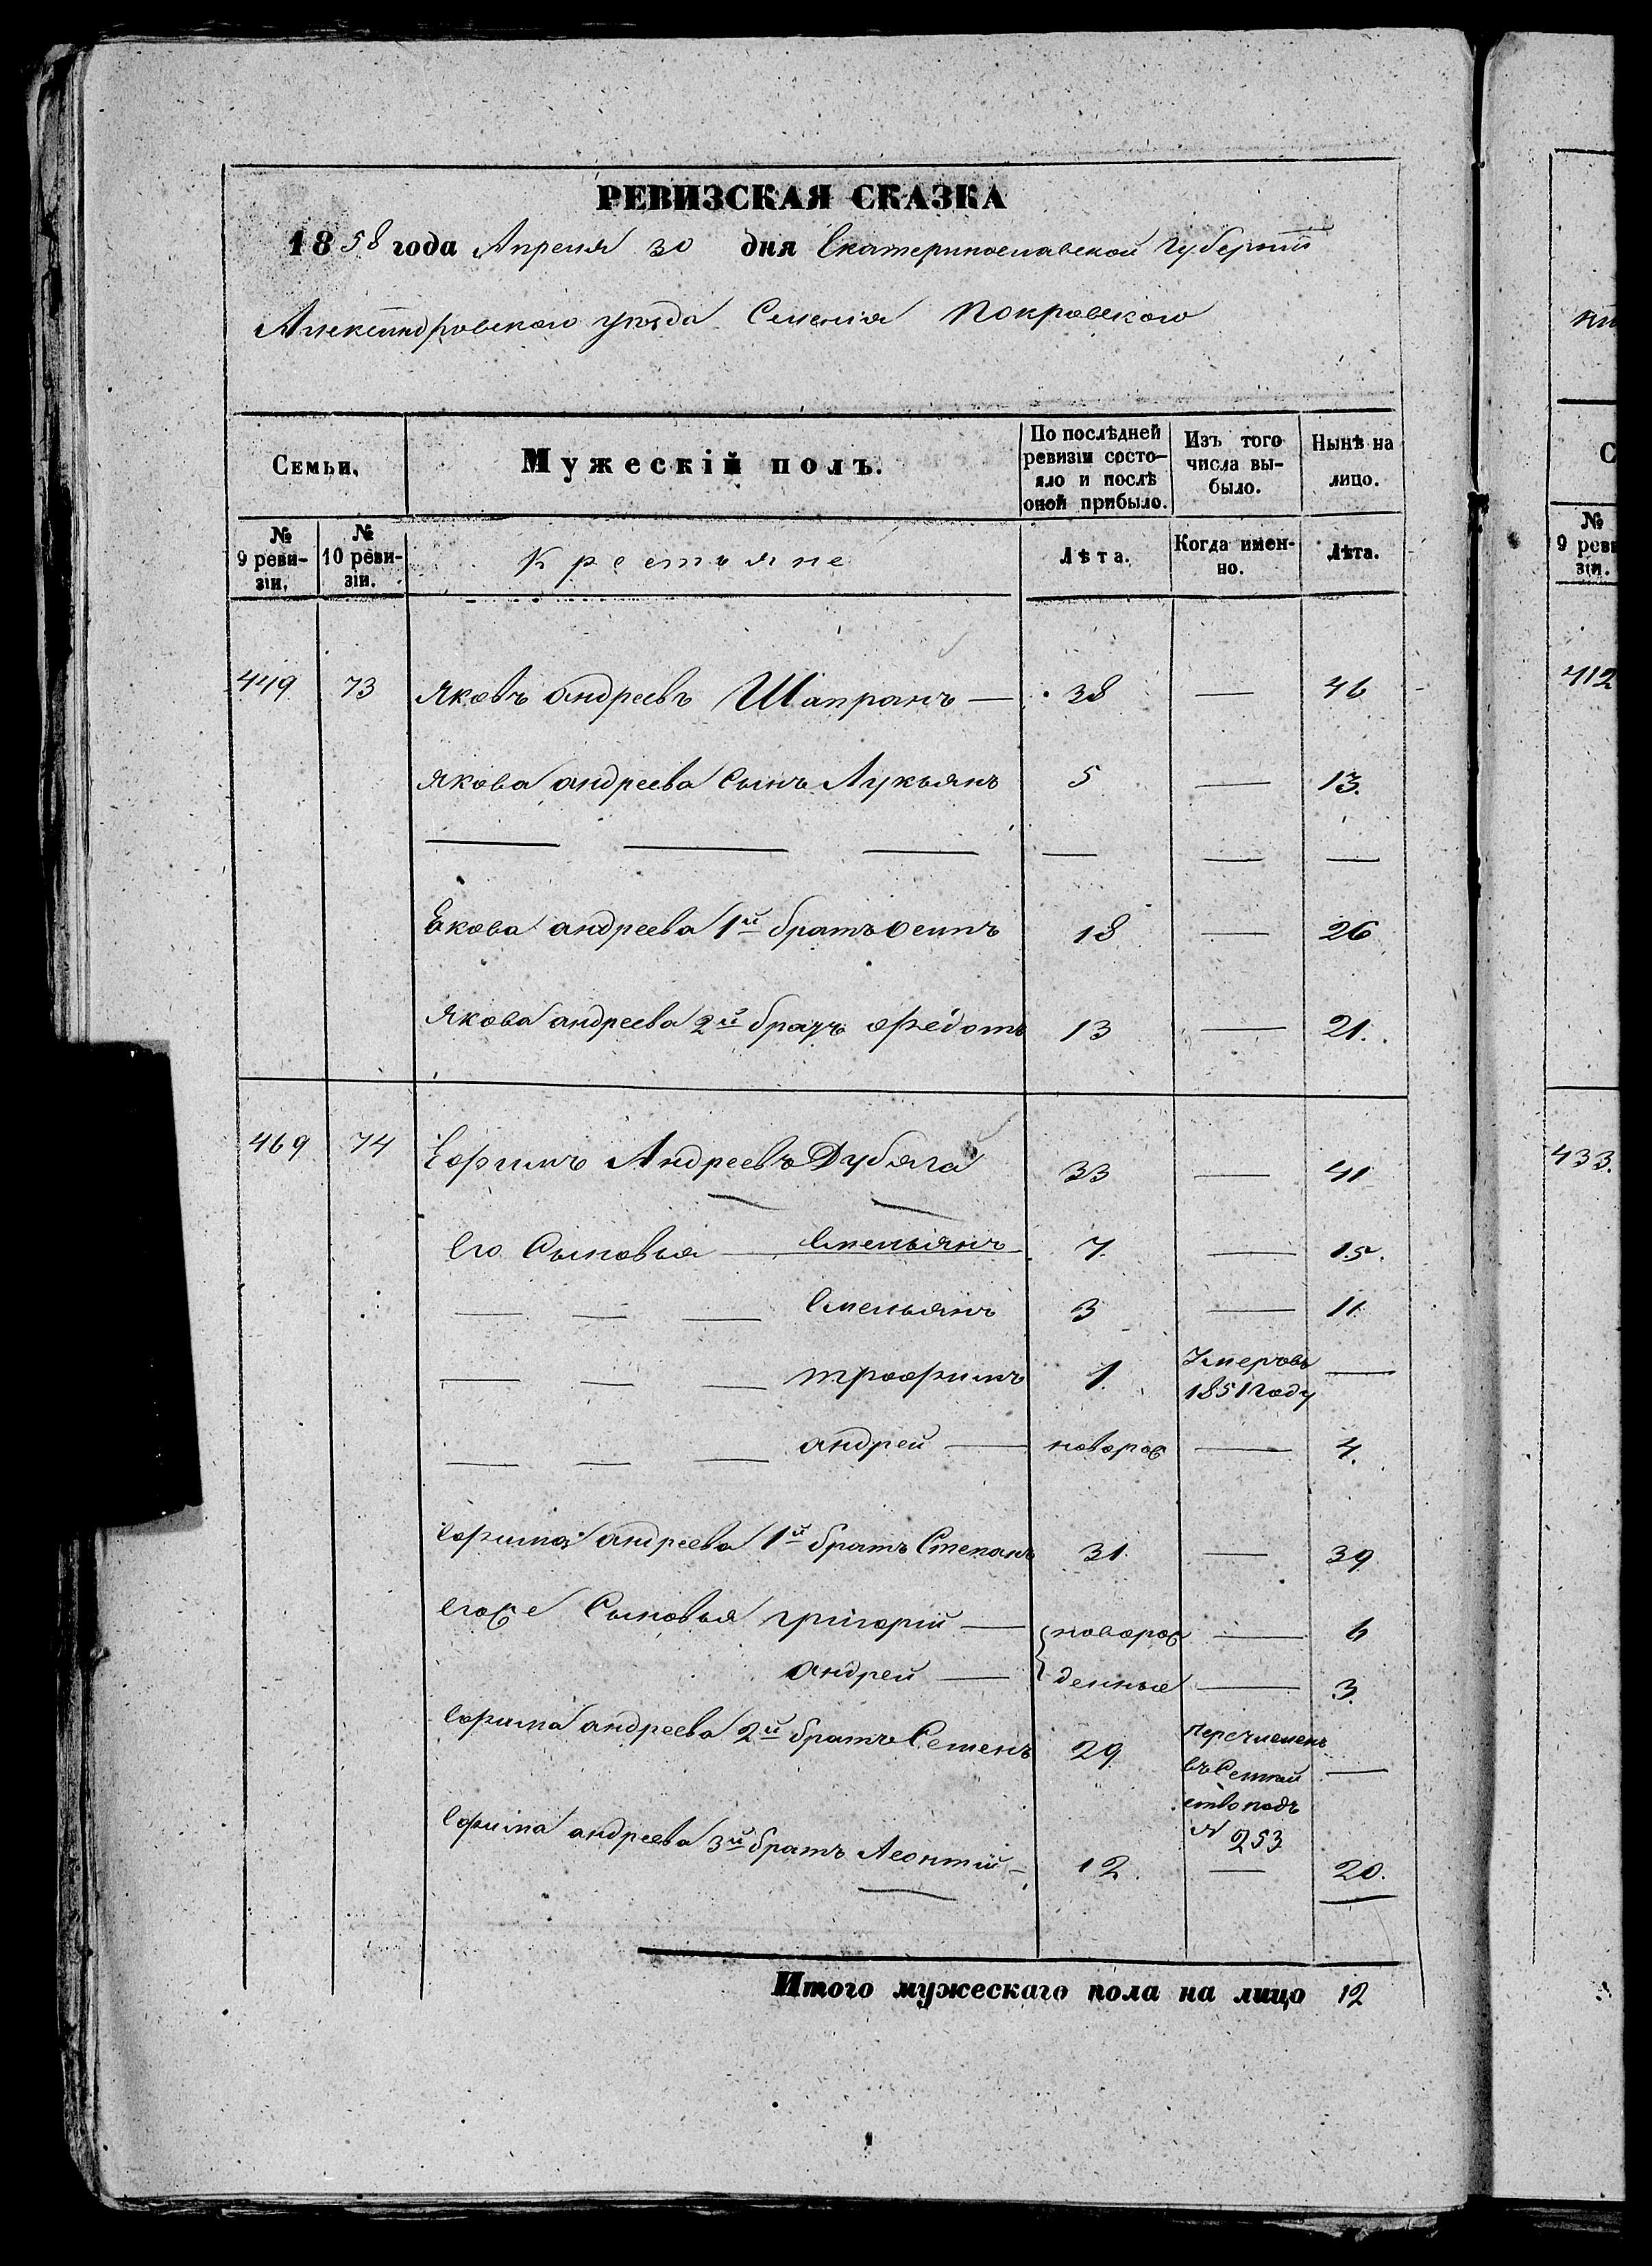 РЕВИЗСКАЯ СКАЗКА
1858 года Апреля 30 дня Екатеринославской Губернии
Александровского уезда Селения Покровского
Семьи. Мужескій полъ. По послѣдней ревизіи состояло и послѣ оной прибыло. Изъ того числа выбыло. Нынѣ на лицо.
№ 9 ревизіи. № 10 ревизіи. Крестьяне Лѣта. Когда именно. Лѣта.
449 73 Яковъ андреевъ Шапранъ — 38 — 46
Якова андреева Сынъ Лукьянъ 5 — 13.
— — — — — —
Якова андреева 1й братъ Осипъ 18 — 26
Якова андреева 2й братъ Ѳедотъ 13 — 21.
469 74 Ефимъ Андреевъ Дубяга 33 — 41
Его Сыновья — Емельянъ 7. — 15.
— — — Емельянъ 3 — 11
— — — трофимъ 1. Умеръ въ 1851 году —
— — — андрей — новорож — 4.
Ефима андреева 1й братъ Степанъ 31. — 39
егоже Сыновья григорій — новорож — 6
андрей — денные — 3.
Ефима андреева 2й братъ Семенъ 29 перечисленъ —
въ Семей
ство подъ
№ 253
Ефима андреева 3й братъ Леонтій — 12. — 20.
Итого мужескаго пола на лицо 12
№ 9 ревизіи.
412
433.